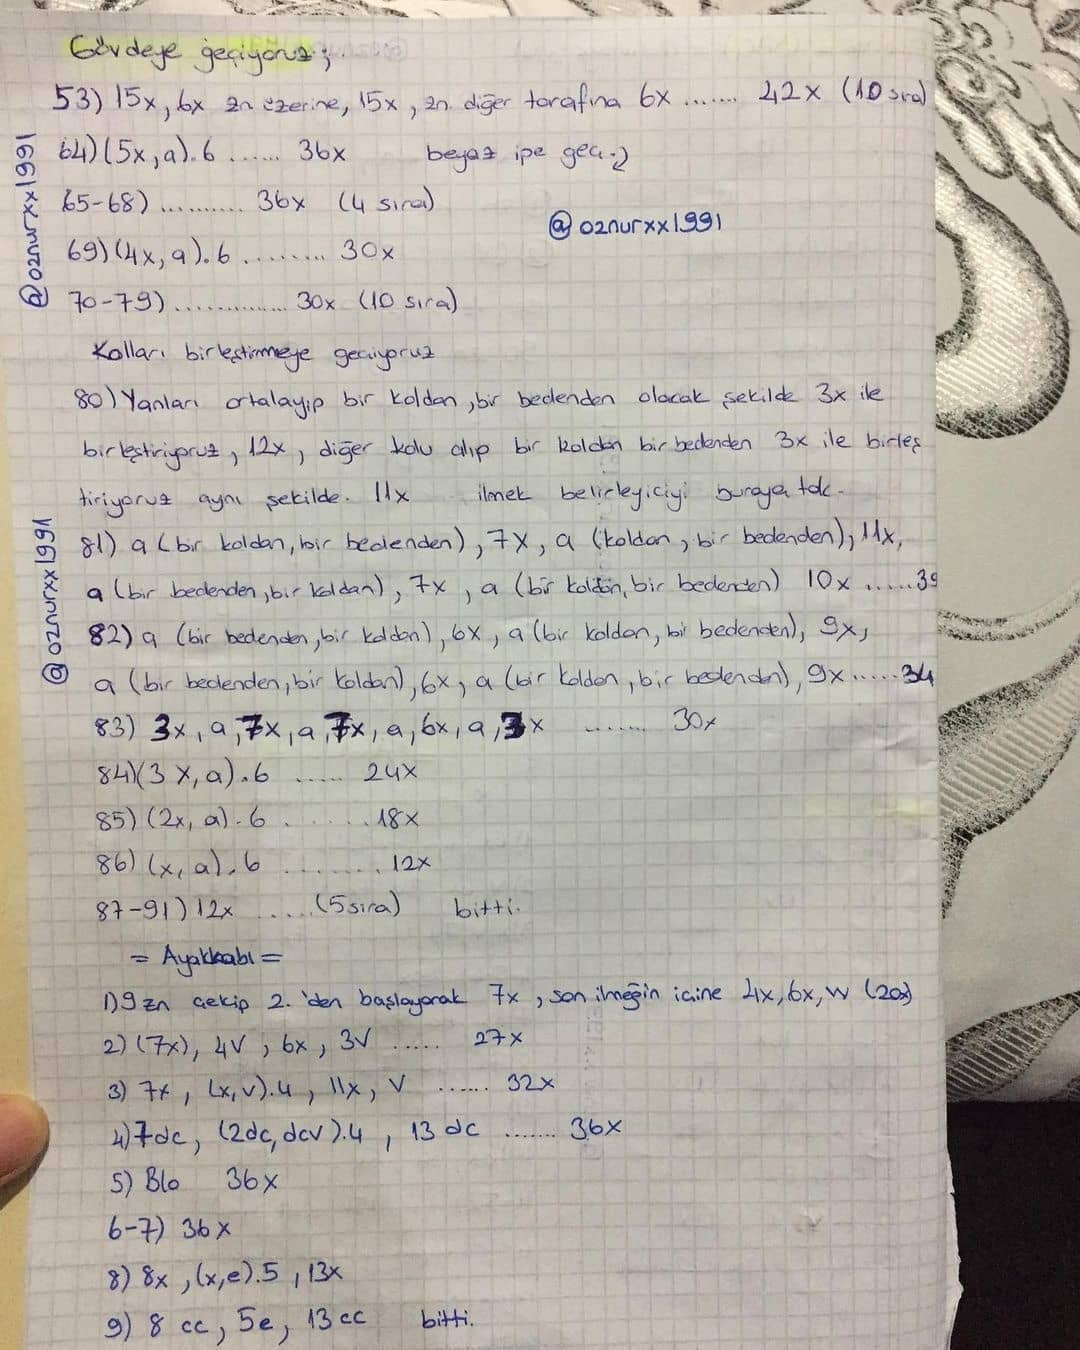 Gövdeye geçiyoruz;
53) 15x, 6x zn üzerine, 15x, zn. diğer tarafına 6x ....... 42x (10 sıra)
64) (5x, a).6 ...... 36x beyaz ipe geç.
65-68) .......... 36x (4 sıra)
@oznurxx1991
69) (4x, a).6 ......... 30x
70-79) ............. 30x (10 sıra)
@oznurxx1991
Kolları birleştirmeye geçiyoruz
80) Yanları ortalayıp bir koldan, bir bedenden olacak şekilde 3x ile
birleştiriyoruz, 12x, diğer kolu alıp bir koldan bir bedenden 3x ile birleş
tiriyoruz aynı şekilde. 11x ilmek belirleyiciyi buraya tak.
81) a (bir koldan, bir bedenden), 7x, a (koldan, bir bedenden), 11x,
a (bir bedenden, bir koldan), 7x, a (bir koldan, bir bedenden) 10x ......39
82) a (bir bedenden, bir koldan), 6x, a (bir koldan, bir bedenden), 9x,
a (bir bedenden, bir koldan), 6x, a (bir koldan, bir bedenden), 9x ......34
@oznurxx1991
83) 3x, a, 7x, a, 7x, a, 6x, a, 3x ....... 30x
84) (3x, a).6 ..... 24x
85) (2x, a).6 . ..... 18x
86) (x, a).6 ........ 12x
87-91) 12x ..... (5 sıra) bitti.
= Ayakkabı =
1) 9 zn çekip 2. 'den başlayarak 7x, son ilmeğin içine 4x, 6x, w (20x)
2) (7x), 4V, 6x, 3V ..... 27x
3) 7x, (x, v).4, 11x, V ...... 32x
4) 7dc, (2dc, dcv).4, 13 dc ....... 36x
5) Blo 36x
6-7) 36x
8) 8x, (x, e).5, 13x
9) 8 cc, 5e, 13 cc bitti.